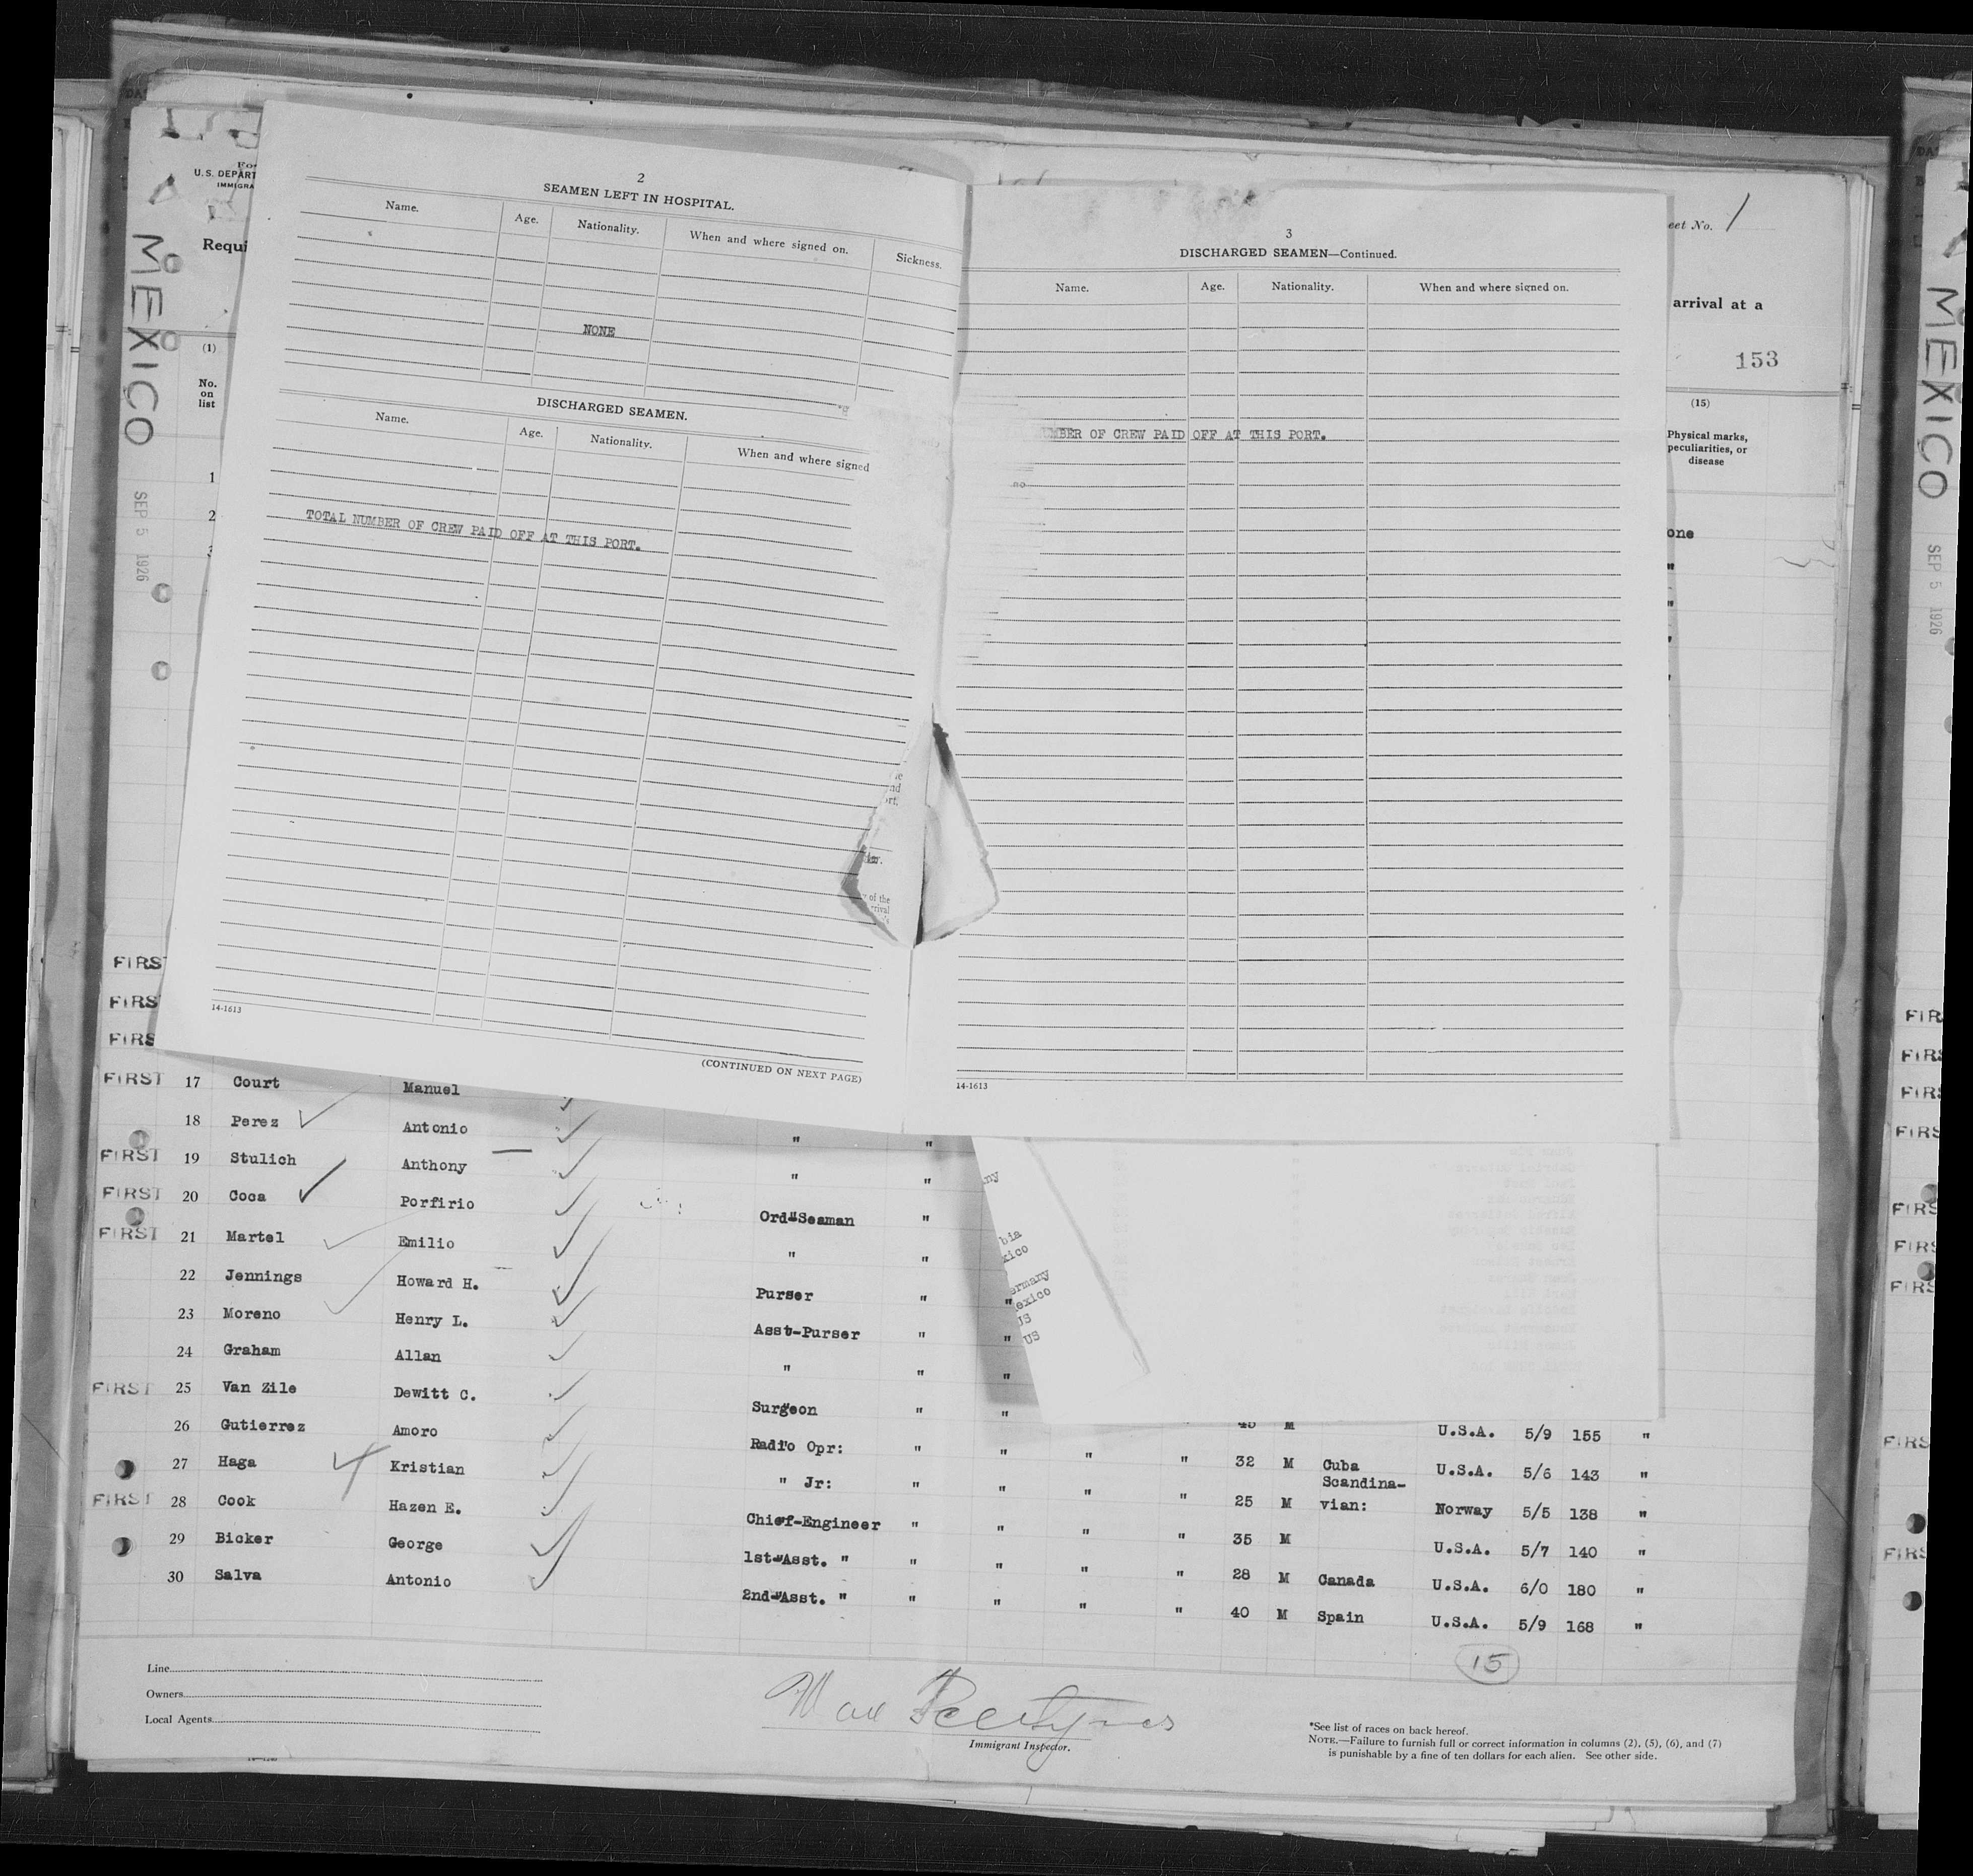 U.S. DEPART
Requi
MEXICO
SEP 5 1926
(1)
No.
on
list
1
2
2
SEAMEN LEFT IN HOSPITAL.
Name. Age. Nationality. When and where signed on. Sickness.
NONE
DISCHARGED SEAMEN.
Name. Age. Nationality. When and where signed
TOTAL NUMBER OF CREW PAID OFF AT THIS PORT.
14-1613
(CONTINUED ON NEXT PAGE)
3
DISCHARGED SEAMEN—Continued.
Name. Age. Nationality. When and where signed on.
UMBER OF CREW PAID OFF AT THIS PORT.
14-1613
eet No. 1
arrival at a
153
(15)
Physical marks,
peculiarities, or
disease
one
"
"
"
"
FIRS
FIRS
FIRS
FIRST 17 Court Manuel
18 Perez Antonio " "
FIRST 19 Stulich Anthony " "
FIRST 20 Coca Porfirio Ord"Seaman "
FIRST 21 Martel Emilio " "
22 Jennings Howard H. Purser " "
23 Moreno Henry L. Asst-Purser " "
24 Graham Allan " " "
FIRST 25 Van Zile Dewitt C. Surgeon " " " 45 M U.S.A. 5/9 155 "
26 Gutierrez Amoro Radio Opr: " " " " 32 M Cuba U.S.A. 5/6 143 "
27 Haga Kristian " Jr: " " " " 25 M Scandina-vian: Norway 5/5 138 "
FIRST 28 Cook Hazen E. Chief-Engineer " " " " 35 M U.S.A. 5/7 140 "
29 Bicker George 1st-Asst. " " " " " 28 M Canada U.S.A. 6/0 180 "
30 Salva Antonio 2nd-Asst. " " " " " 40 M Spain U.S.A. 5/9 168 "
ermany
exico
US
15
Line
Owners
Local Agents
Immigrant Inspector.
*See list of races on back hereof.
NOTE.—Failure to furnish full or correct information in columns (2), (5), (6), and (7)
is punishable by a fine of ten dollars for each alien. See other side.
MEXICO
SEP 5 1926
FIR
FIR
FIR
FIRS
FIRS
FIRS
FIRS
FIRS
FIRS